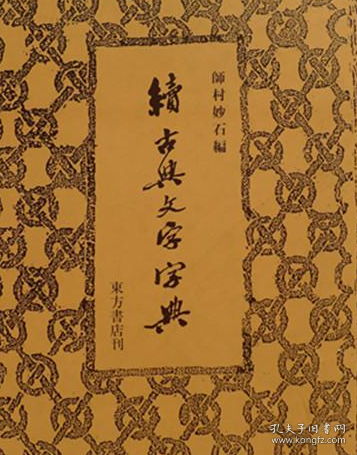 師村妙石編
續古典文字字典
東方書店刊
孔夫子旧书网
book.kongfz.com